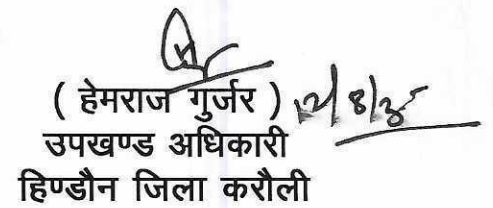 ( हेमराज गुर्जर ) 12/8/25
उपखण्ड अधिकारी
हिण्डौन जिला करौली